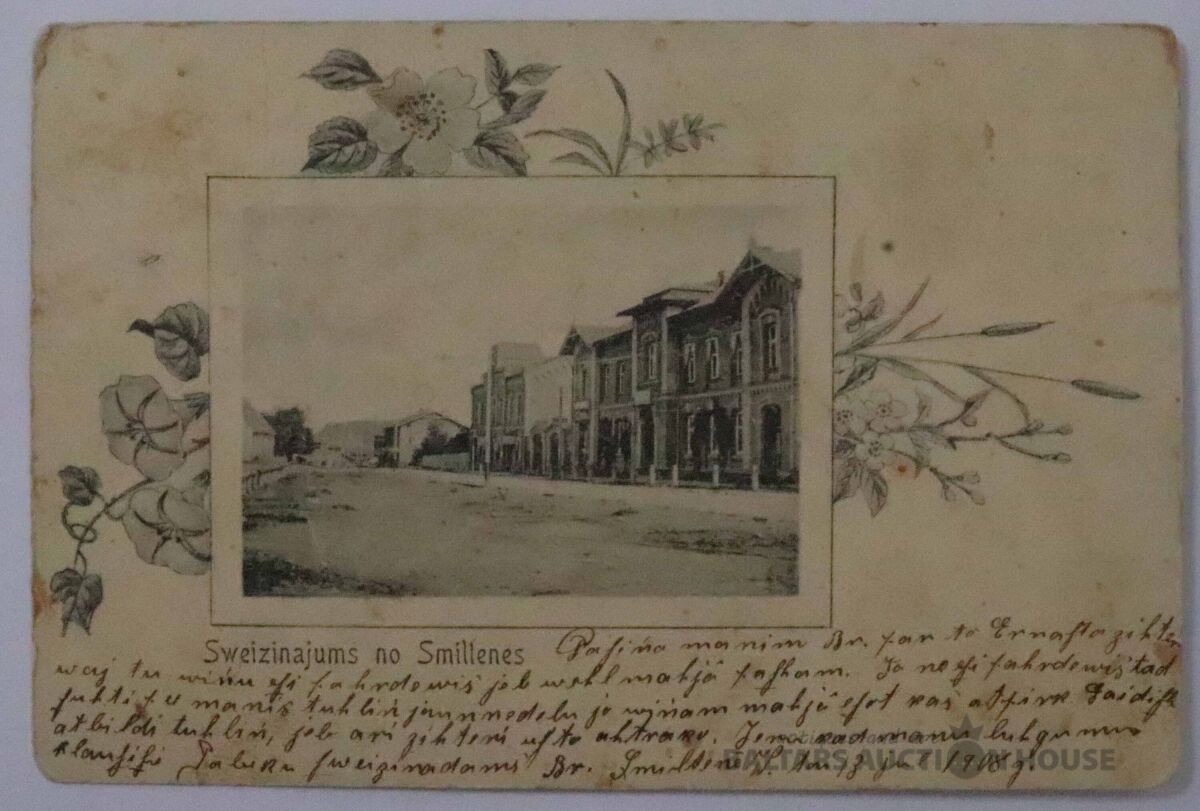 Sweizinajums no Smiltenes
Pasiņo manim Br. par to Ernasta zihter
waj tu wiņu esi pahrdewis jeb wehl mahjā pascham. Ja ne esi pahrdewis tad
suhti manis tuhliņ jaunnedelu jo wiņam mahjā esot kas atpirk
atbildi tuhliņ, jeb ari zihteri usto ahtraki. manu luhgumu
klausisi Paleku sweizinadams Br. Smiltenē 1908 g.
BALTARS AUCTION HOUSE